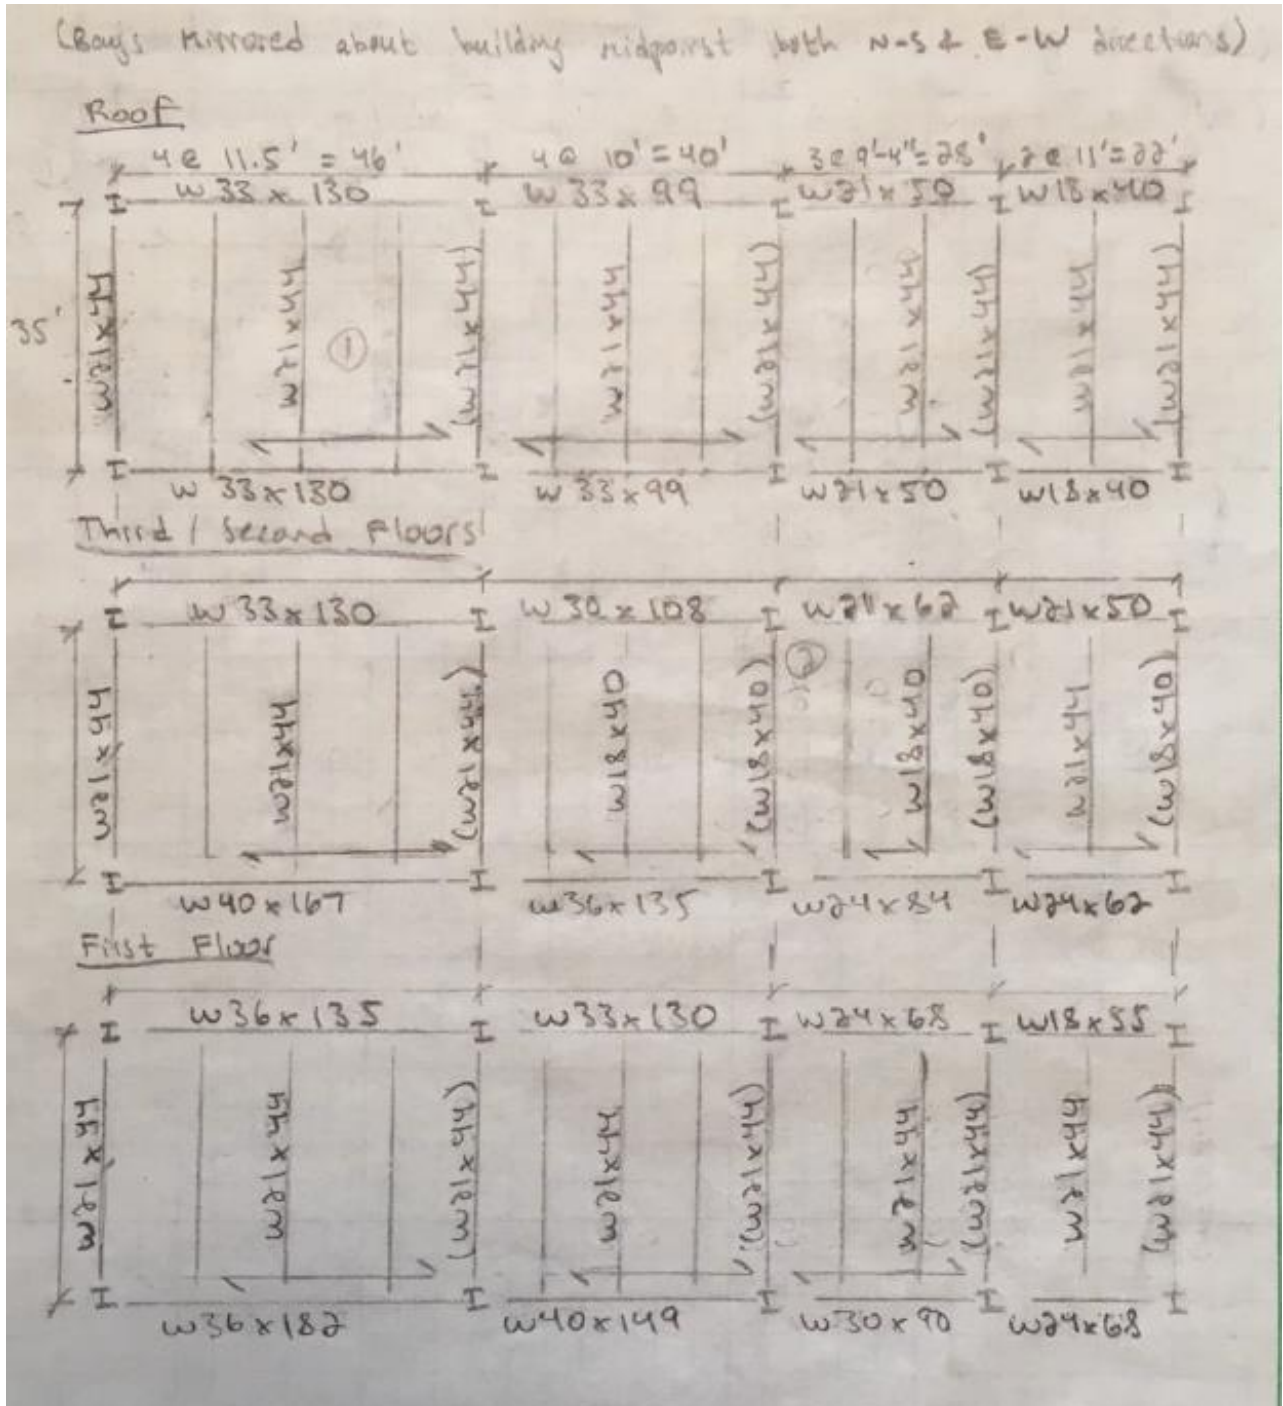 (Bays Mirrored about building midpoinst both N-S & E-W directions)
Roof
4@ 11.5' = 46' 4@ 10' = 40' 3@ 9'-4"= 28' 2@ 11'= 22'
W33x130 W33x99 W21x50 W18x40
35'
W21x44 W21x44 (W21x44) W21x44 (W21x44) W21x44 (W21x44) W21x44 (W21x44)
1
W33x130 W33x99 W21x50 W18x40
Third / Second Floors
W33x130 W30x108 W21x62 W21x50
2
W21x44 W21x44 (W21x44) W18x40 (W18x40) W18x40 (W18x40) W21x44 (W18x40)
W40x167 W36x135 W24x84 W24x62
First Floor
W36x135 W33x130 W24x68 W18x55
W21x44 W21x44 (W21x44) W21x44 (W21x44) W21x44 (W21x44) W21x44 (W21x44)
W36x182 W40x149 W30x90 W24x68